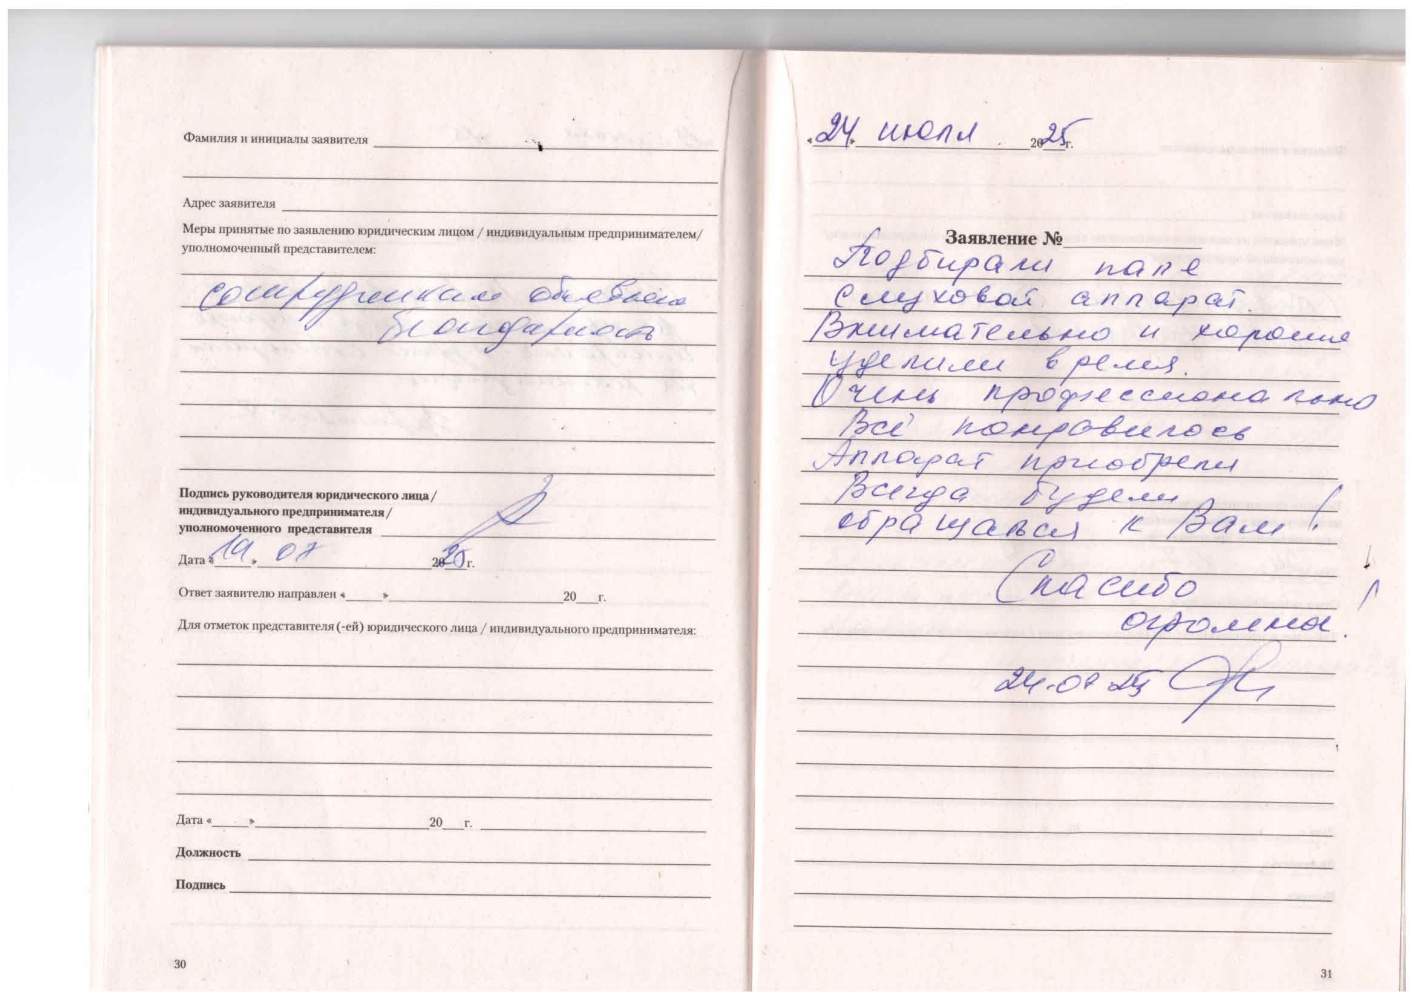 Фамилия и инициалы заявителя
Адрес заявителя
Меры принятые по заявлению юридическим лицом / индивидуальным предпринимателем/
уполномоченный представителем:
сотрудникам объявлена
благодарность
Подпись руководителя юридического лица/
индивидуального предпринимателя/
уполномоченного представителя
Дата «19» 07 2025 г.
Ответ заявителю направлен «___»___20___г.
Для отметок представителя (-ей) юридического лица / индивидуального предпринимателя:
Дата «___»___20___г.
Должность
Подпись
30
«24» июля 2025г.
Заявление №
Подбирали папе
слуховой аппарат.
Внимательно и хорошо
уделили время.
Очень профессионально
Всё понравилось
Аппарат приобрели
Всегда будем
обращаться к Вам!
Спасибо
огромное!
24.07.25
31